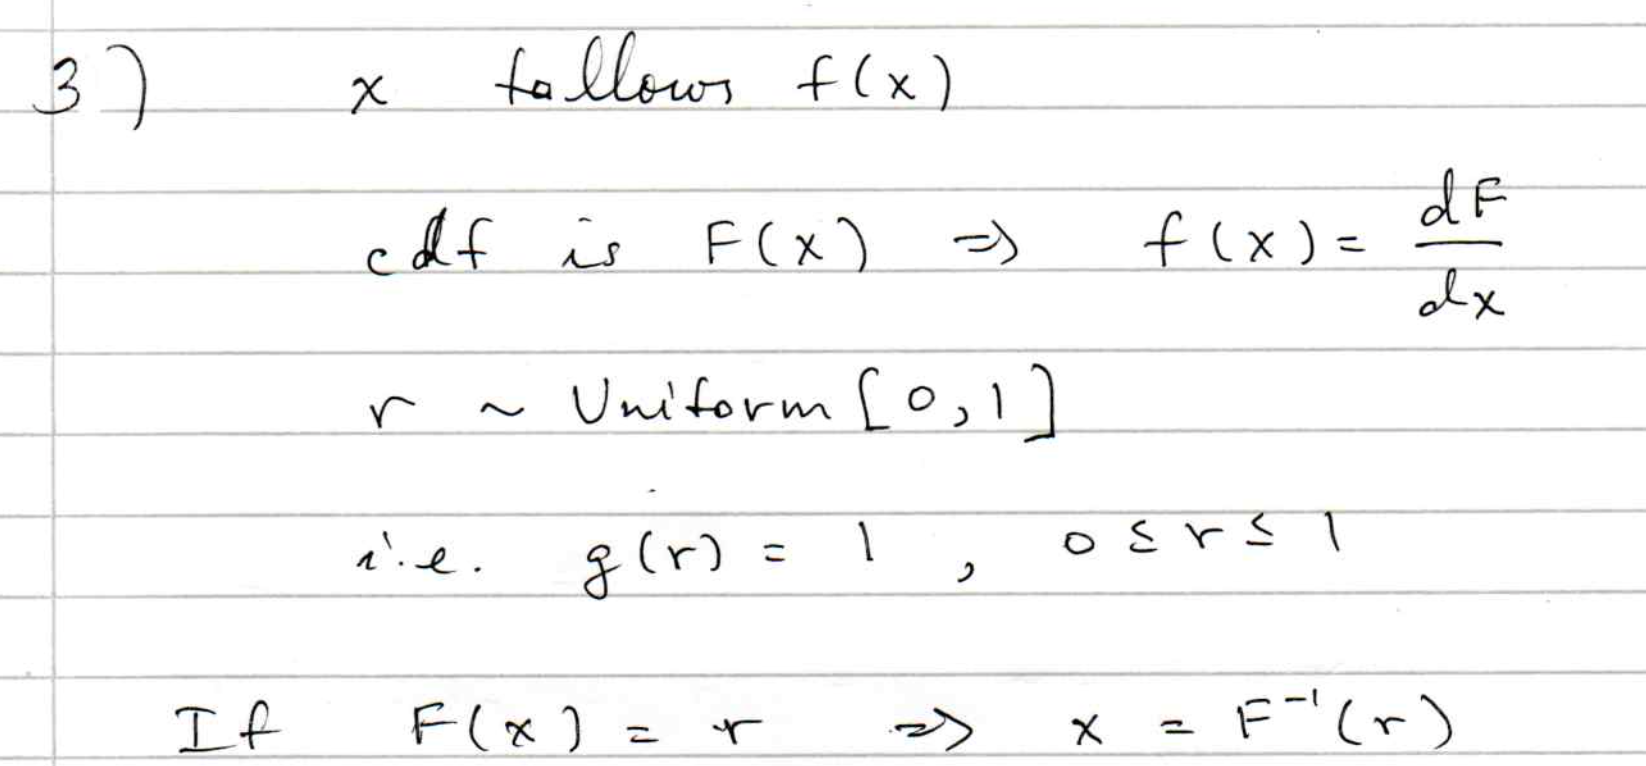 3) x follows f(x)
cdf is F(x) ⇒ f(x) = dF/dx
r ~ Uniform [0,1]
i.e. g(r) = 1 , 0 ≤ r ≤ 1
If F(x) = r ⇒ x = F⁻¹(r)